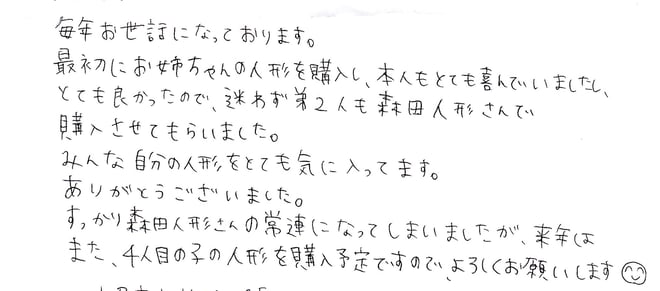 毎年お世話になっております。
最初にお姉ちゃんの人形を購入し、本人もとても喜んでいましたし、
とても良かったので、迷わず弟2人も森田人形さんで
購入させてもらいました。
みんな自分の人形をとても気に入ってます。
ありがとうございました。
すっかり森田人形さんの常連になってしまいましたが、来年は
また、4人目の子の人形を購入予定ですので、よろしくお願いします